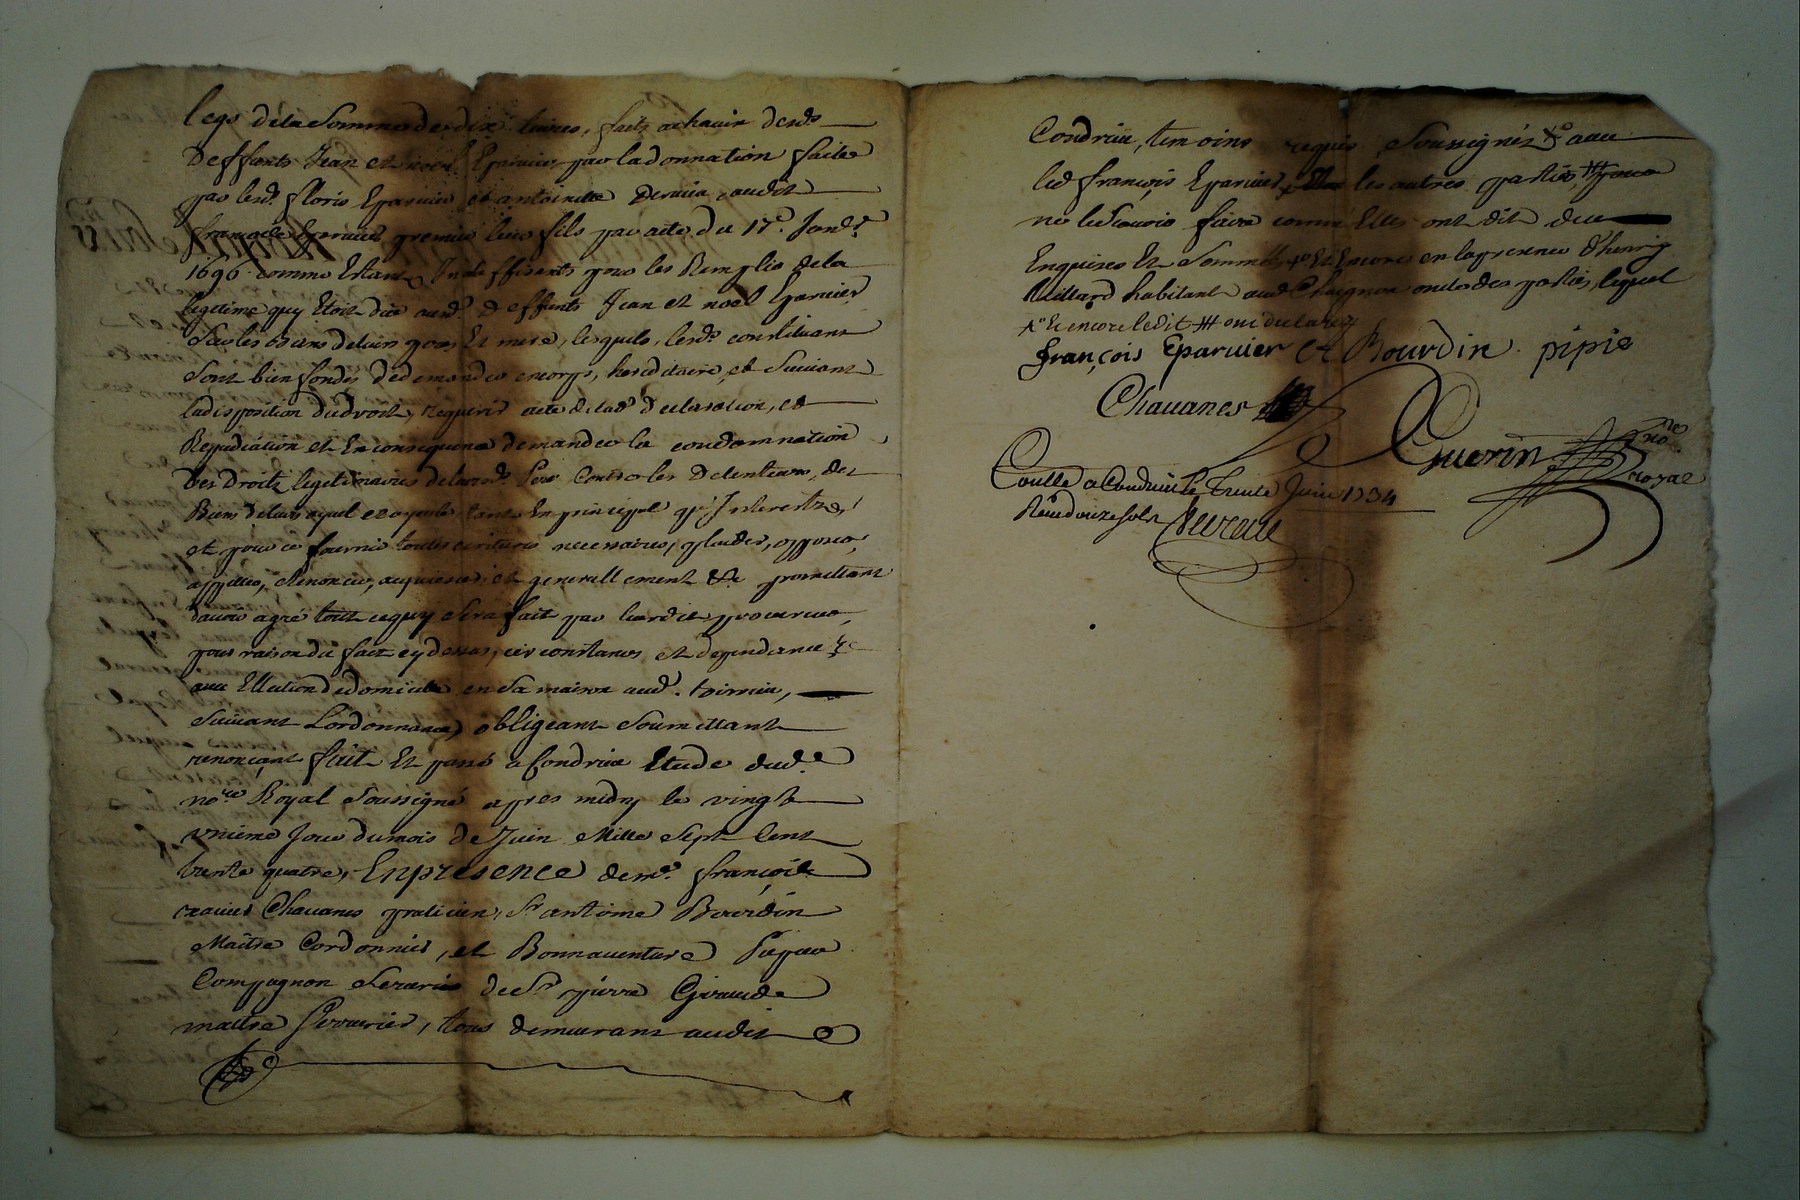 legs de la Somme de dix livres, faits achacun desd.
Deffunts Jean et noel Eparvier par la donnation faite
par lesd. floris Eparvier et antoinette audit
françois Eparvier premier leur fils par acte du 17e. Janv.r
1696. comme Estant Insuffisants pour les Remplir de la
legitime quy Etoit due ausd. deffunts Jean et noel Eparvier
Sur les biens de leurs pere Et mere, lesquels, lesd. constituant
Sont bien fondés de demander en corps, hereditaire, et Suivant
la disposition du droit, requerir acte de lad. declaration, et
Repudiation et En consequence demander la condamnation
Des Droits legitimaires Contre les Detenteurs, des
Biens de leurs ayeul et ayeule tant En principal qu'Interestz,
et pour ce fournir toutes ecritures necessaires, plaider, opposer,
appeller, renoncer, acquiescer et generallement &c promettant
davoir agré tout ce quy Sera fait par leurdit procureur,
pour raison du fait cy dessus, circonstances et dependances
avec Ellection de domicile en Sa maison aud.
Suivant Lordonnance, obligeant Soumettant
renonçant fait Et passé a Condrieu Etude dud.
no.re Royal Soussigné apres midy le vingt
vnieme Jour du mois de Juin Mille Sept Cent
trente quatre, En presence de m.e françois
xavier Chavanes praticien, Sr antoine Bourdin
Maître Cordonnier, et Bonnaventure
Compagnon Serurier de Sr pierre Giraud
maitre Serrurier, tous demeurant audit
Condrieu, temoins requis Soussignés avec
led françois Eparvier, les autres parties pour
ne le Scavoir faire comme Elles ont dit de ce
Enquises Et Sommées Et Encore en la presence d'henry
Villard habitant aud Chaignon des parties, lequel
Et encore ledit ont declaré
françois Eparvier et Bourdin pipie
Chavanes
Guerin no.re
royal
Con.lle a Condrieu Le Trente Juin 1734
Reçu douze sols